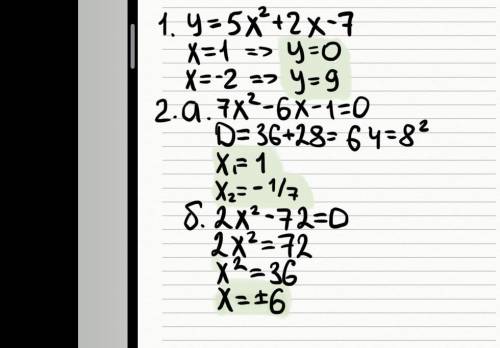 1. y=5x²+2x-7
x=1 => y=0
x=-2 => y=9
2. а. 7x²-6x-1=0
D=36+28=64=8²
x₁=1
x₂=-1/7
б. 2x²-72=0
2x²=72
x²=36
x=±6